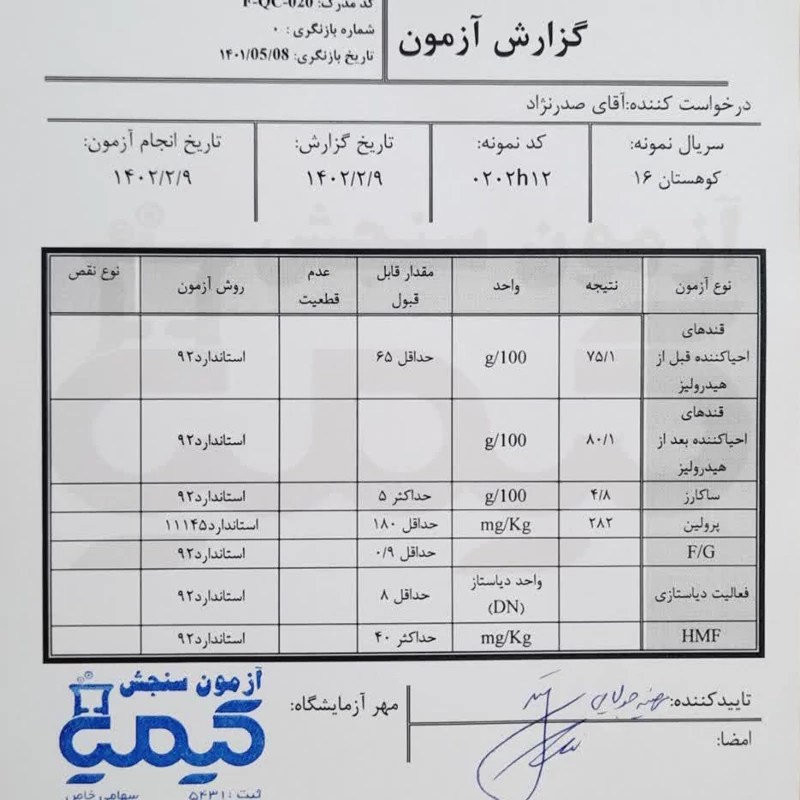 کد مدرک: F-QC-020
شماره بازنگری: ۰
تاریخ بازنگری: ۱۴۰۱/05/08
گزارش آزمون
درخواست کننده:آقای صدرنژاد
سریال نمونه: کد نمونه: تاریخ گزارش: تاریخ انجام آزمون:
کوهستان ۱۶ ۰۲۰۲h۱۲ ۱۴۰۲/۲/۹ ۱۴۰۲/۲/۹
نوع آزمون نتیجه واحد مقدار قابل قبول عدم قطعیت روش آزمون نوع نقص
قندهای احیاکننده قبل از هیدرولیز ۷۵/۱ g/100 حداقل ۶۵ استاندارد۹۲
قندهای احیاکننده بعد از هیدرولیز ۸۰/۱ g/100 استاندارد۹۲
ساکارز ۴/۸ g/100 حداکثر ۵ استاندارد۹۲
پرولین ۲۸۲ mg/Kg حداقل ۱۸۰ استاندارد۱۱۱۴۵
F/G حداقل ۰/۹ استاندارد۹۲
فعالیت دیاستازی واحد دیاستاز (DN) حداقل ۸ استاندارد۹۲
HMF mg/Kg حداکثر ۴۰ استاندارد۹۲
تاییدکننده:
امضا:
مهر آزمایشگاه:
آزمون سنجش
کیمیا
ثبت : ۵۴۳۱ سهامی خاص